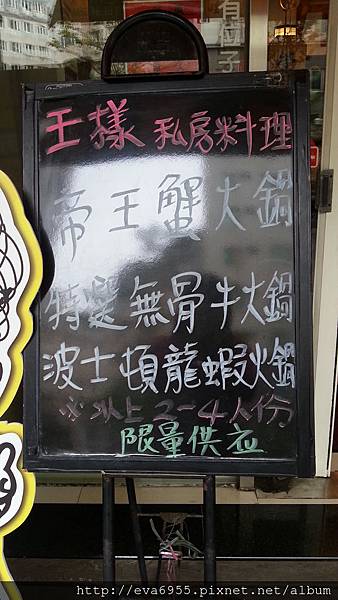 王樣 私房料理
帝王蟹火鍋
特選無骨牛火鍋
波士頓龍蝦火鍋
※以上2-4人份
限量供应
http://eva6955.pixnet.net/album